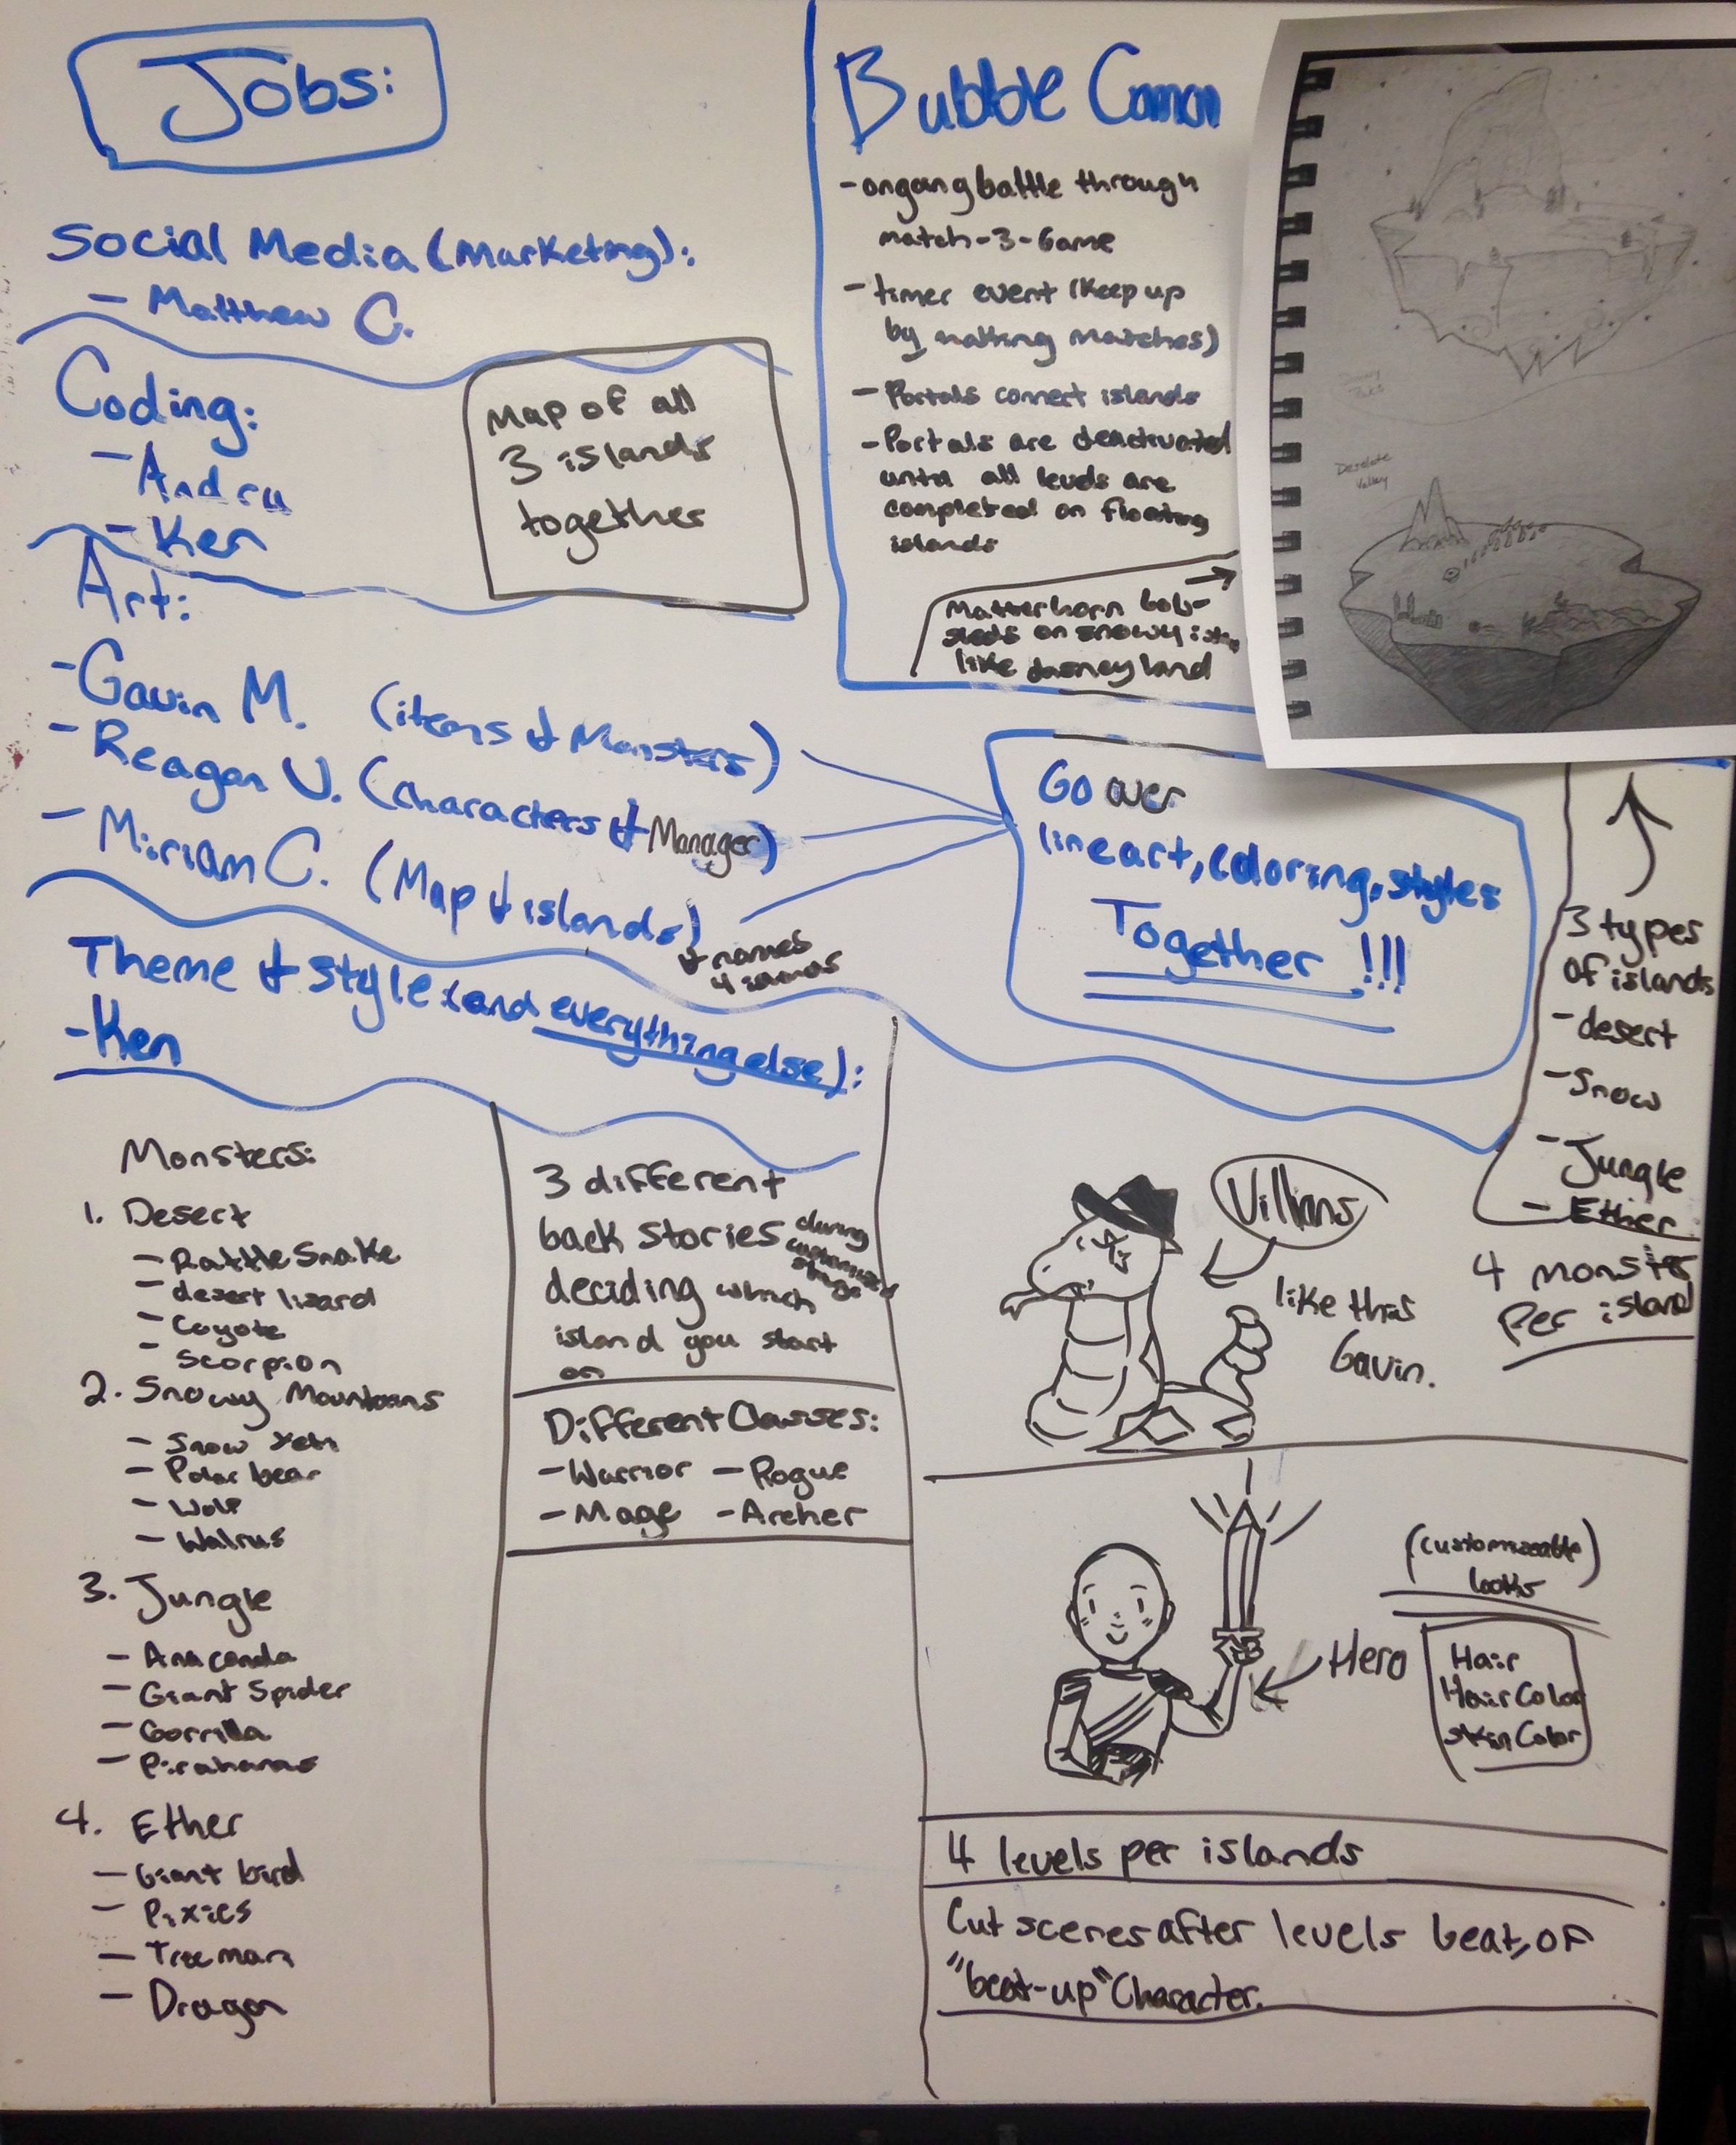 Jobs:
Social Media (Marketing):
- Matthew C.
Coding:
- Andru
- Ken
Map of all
3 islands
together
Art:
- Gavin M. (items & Monsters)
- Reagan V. (characters & Manager)
- Miriam C. (Map & islands)
& names
4 islands
Theme & style (and everything else):
- Ken
Bubble
- ongoing battle through
match-3-Game
- timer event (Keep up
by making matches)
- Portals connect islands
- Portals are deactivated
until all levels are
completed on floating
islands
Matterhorn bob-
sleds on snowy
like disneyland
Desolate
Valley
Go over
lineart, coloring, styles
Together !!!
3 types
of islands
- desert
- Snow
- Jungle
- Ether
4 monsters
Per island
Monsters:
1. Desert
- Rattle Snake
- desert lizard
- Coyote
- Scorpion
2. Snowy Mountains
- Snow Yeti
- Polar bear
- Wolf
- Walrus
3. Jungle
- Anaconda
- Giant Spider
- Gorrilla
- Pirahanas
4. Ether
- Giant bird
- Pixies
- Tree man
- Dragon
3 different
back stories during
deciding which
island you start
on
Different Classes:
- Warrior - Rogue
- Mage - Archer
Villians
like this
Gavin.
(customizeable)
looks
Hero
Hair
Hair Color
Skin Color
4 levels per islands
Cut scenes after levels beat, of
"beat-up" Character.